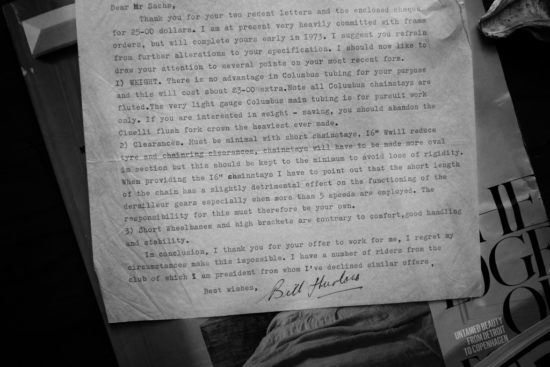 Dear Mr Sachs,
Thank you for your two recent letters and the enclosed cheque
for 25-00 dollars. I am at present very heavily committed with frame
orders, but will complete yours early in 1973. I suggest you refrain
from further alterations to your specification. I should now like to
draw your attention to several points on your most recent form.
1) WEIGHT. There is no advantage in Columbus tubing for your purpose
and this will cost about £3-00 extra. Note all Columbus chainstays are
fluted. The very light gauge Columbus main tubing is for pursuit work
only. If you are interested in weight - saving, you should abandon the
Cinelli flush fork crown the heaviest ever made.
2) Clearances. Must be minimal with short chainstays. 16" Wwill reduce
tyre and chainring clearances, chainstays will have to be made more oval
in section but this should be kept to the minimum to avoid loss of rigidity.
When providing the 16" chainstays I have to point out that the short length
of the chain has a slightly detrimental effect on the functioning of the
derailleur gears especially when more than 5 speeds are employed. The
responsibility for this must therefore be your own.
3) Short Wheelbases and high brackets are contrary to comfort, good handling
and stability.
In conclusion, I thank you for your offer to work for me, I regret my
circumstances make this impossible. I have a number of riders from the
club of which I am president from whom I've declined similar offers.
Best wishes, Bill Hurlow
UNTAMED BEAUTY
FROM DETROIT
TO COPENHAGEN